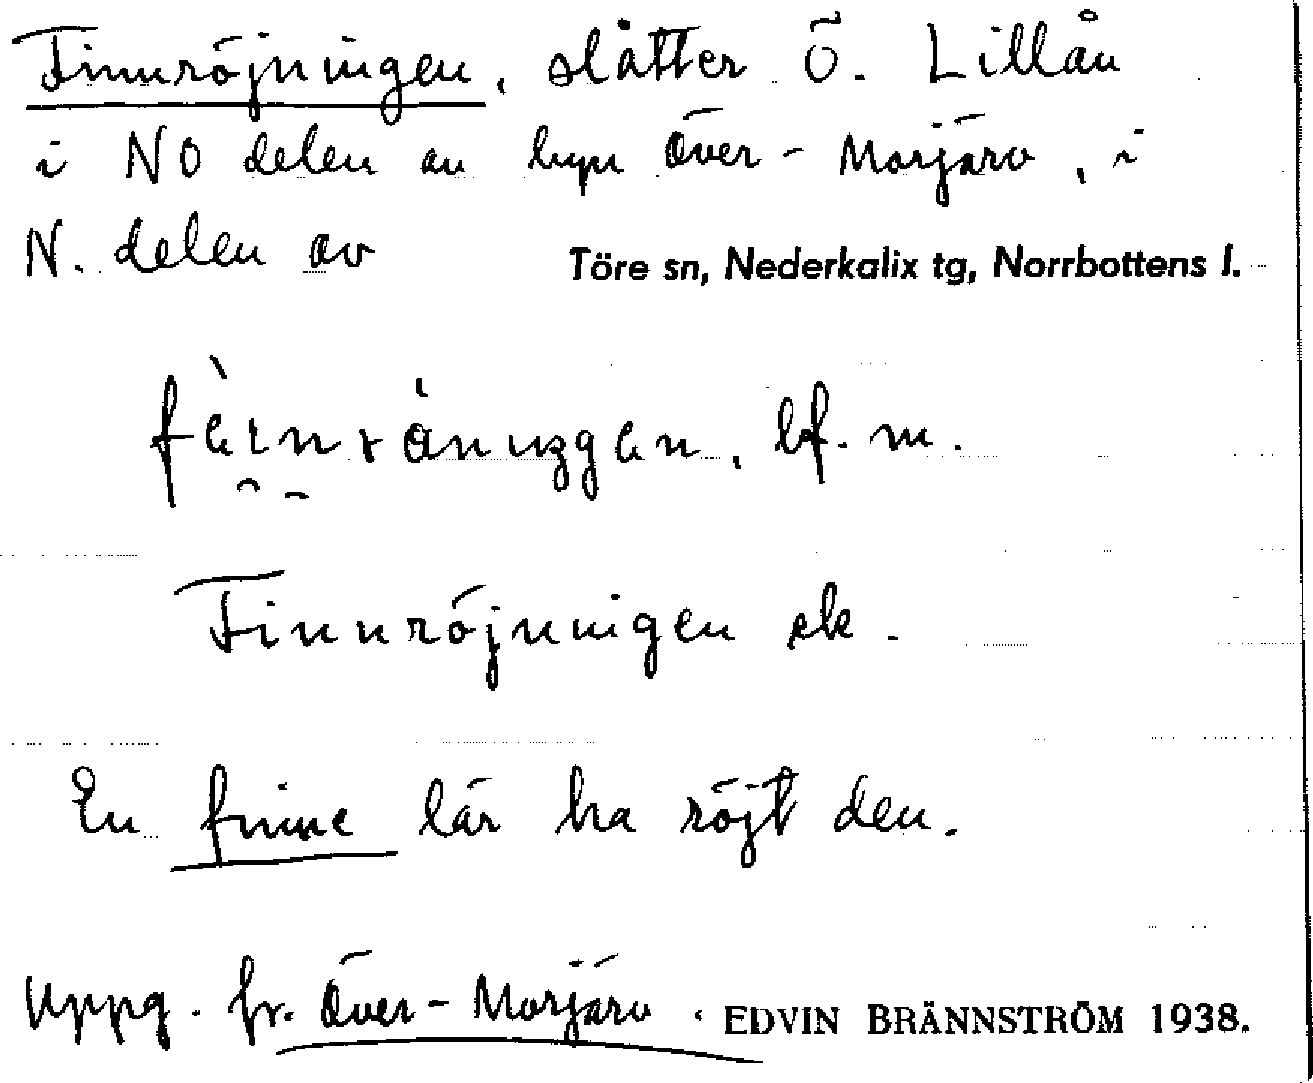 Finnröjningen, slåtter Ö. Lillån
i NO delen av byn Över-Morjärv, i
N. delen av Töre sn, Nederkalix tg, Norrbottens l.
bf. m.
Finnröjningen sk.
En finne lär ha röjt den.
Uppg. fr. Över-Morjärv. EDVIN BRÄNNSTRÖM 1938.